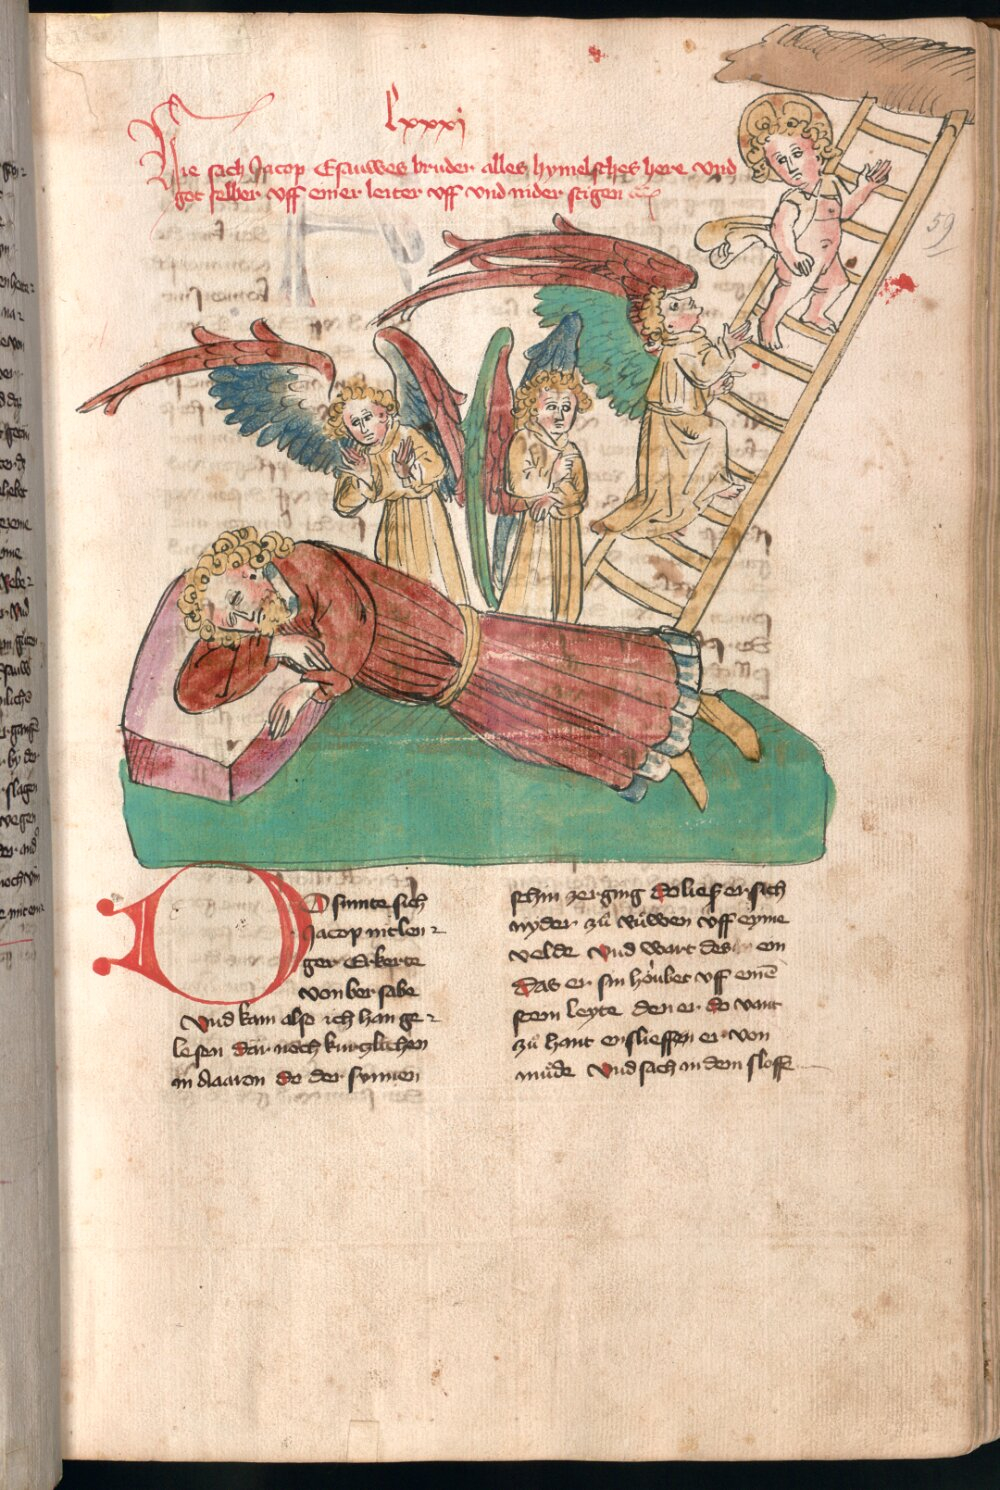 lxxxj
Hie sach Jacop Esauwes bruder alles hymelsches here vnd
got selber vff einer leiter vff vnd nider stigen
59
DO sumte sich
Jacop nit len-
ger Er kerte
von bersabe
Vnd kam also ich han ge-
lesen Dar noch kurtzlichen
in Aaron Do der sunnen
schin zerging Do liesz er sich
nyder zů růwen vff eyme
velde Vnd wart des ein
Das er sin höubet vff einē
stein leyte den er do vant
zů hant enslieffen er von
můde Vnd sach in dem sloffe